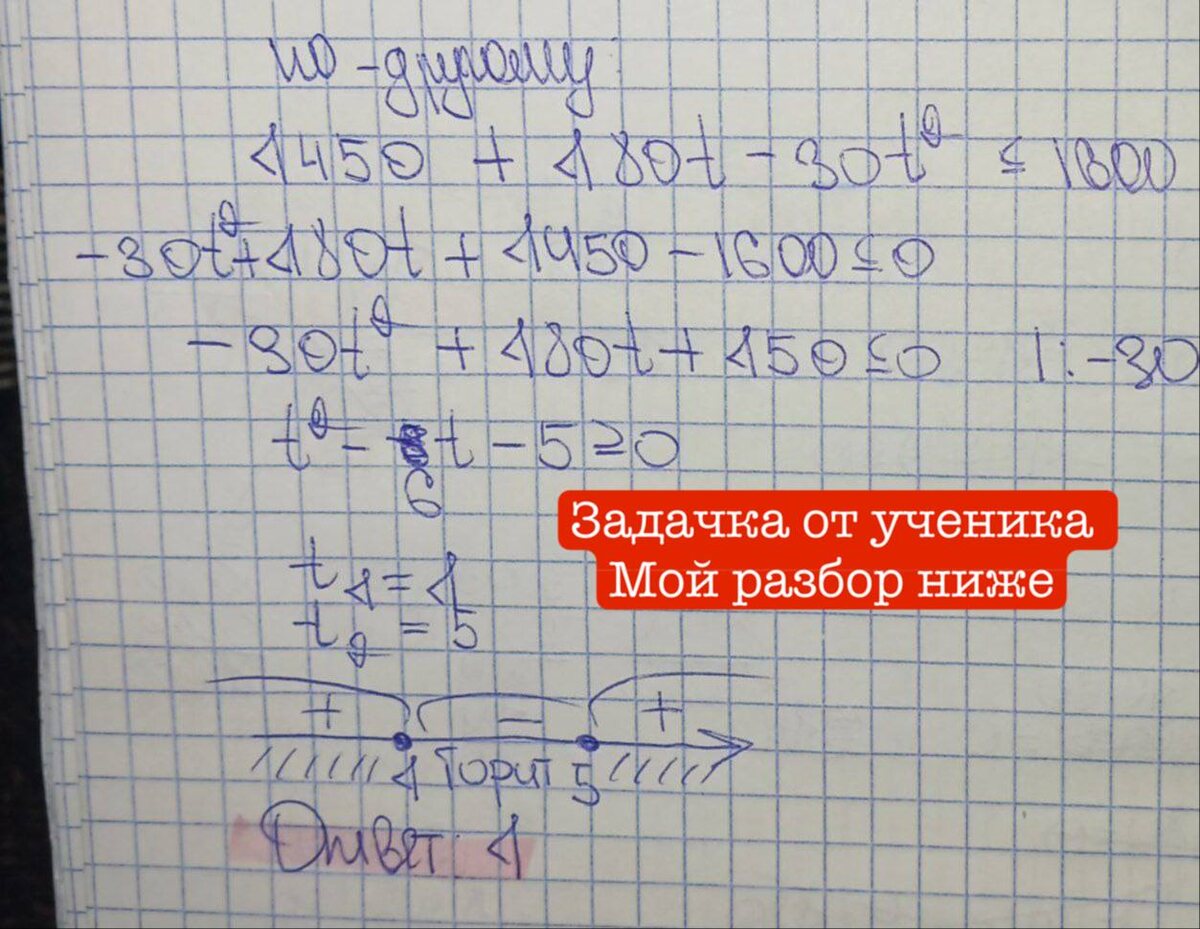 по-другому:
1450 + 180t - 30t² ≤ 1600
-30t² + 180t + 1450 - 1600 ≤ 0
-30t² + 180t + 150 ≤ 0 |: -30
t² - 6t - 5 ≥ 0
Задачка от ученика
Мой разбор ниже
t₁ = 1
t₂ = 5
+ - +
1 Горит 5
Ответ: 1